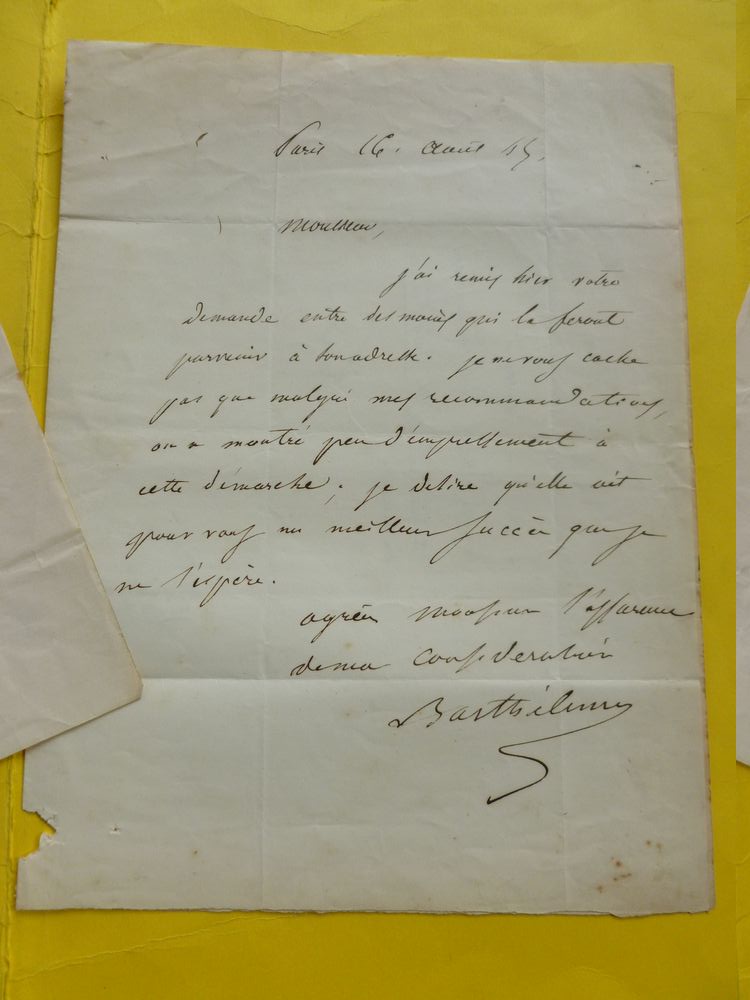 Paris 16. Aout 45,
Monsieur,
j'ai remis hier votre
demande entre des mains qui la feront
parvenir à son adresse. je ne vous cache
pas que malgré mes recommandations,
on a montré peu d'empressement à
cette démarche ; je desire qu'elle ait
pour vous un meilleur succès que je
ne l'espère.
agréez monsieur l'assurance
de ma consideration
Barthélemy